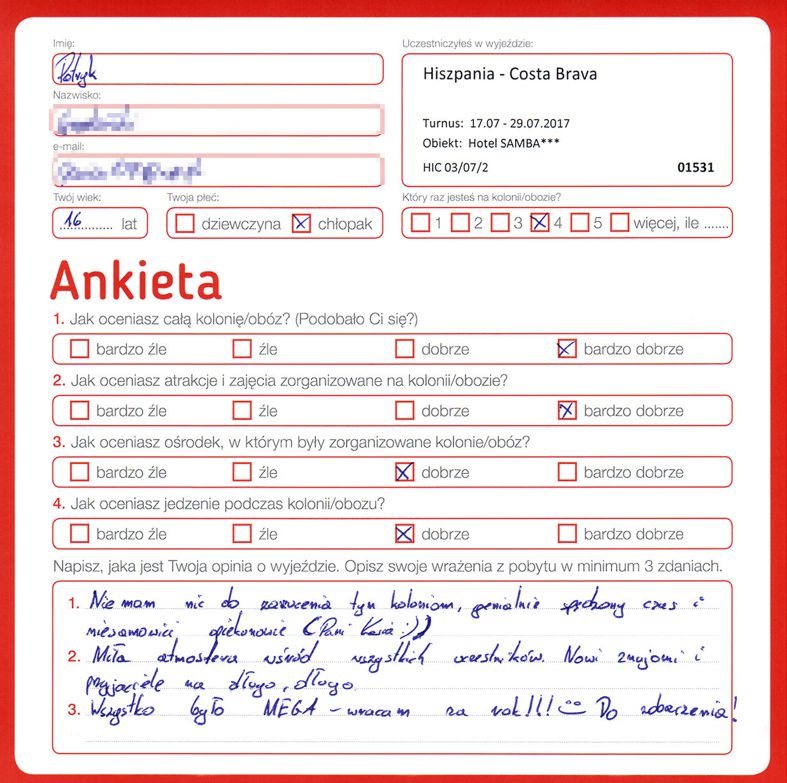 Imię:
Patryk
Nazwisko:
e-mail:
Twój wiek:
16 lat
Twoja płeć:
dziewczyna chłopak
Uczestniczyłeś w wyjeździe:
Hiszpania - Costa Brava
Turnus: 17.07 - 29.07.2017
Obiekt: Hotel SAMBA***
HIC 03/07/2 01531
Który raz jesteś na kolonii/obozie?
1 2 3 4 5 więcej, ile .......
Ankieta
1. Jak oceniasz całą kolonię/obóz? (Podobało Ci się?)
bardzo źle źle dobrze bardzo dobrze
2. Jak oceniasz atrakcje i zajęcia zorganizowane na kolonii/obozie?
bardzo źle źle dobrze bardzo dobrze
3. Jak oceniasz ośrodek, w którym były zorganizowane kolonie/obóz?
bardzo źle źle dobrze bardzo dobrze
4. Jak oceniasz jedzenie podczas kolonii/obozu?
bardzo źle źle dobrze bardzo dobrze
Napisz, jaka jest Twoja opinia o wyjeździe. Opisz swoje wrażenia z pobytu w minimum 3 zdaniach.
1. Nie mam nic do zarzucenia tym koloniom, genialnie spędzony czas i
niesamowici opiekunowie (Pani Kasia :))
2. Miła atmosfera wśród wszystkich uczestników. Nowi znajomi i
przyjaciele na długo, długo.
3. Wszystko było MEGA - wracam za rok!!! Do zobaczenia!